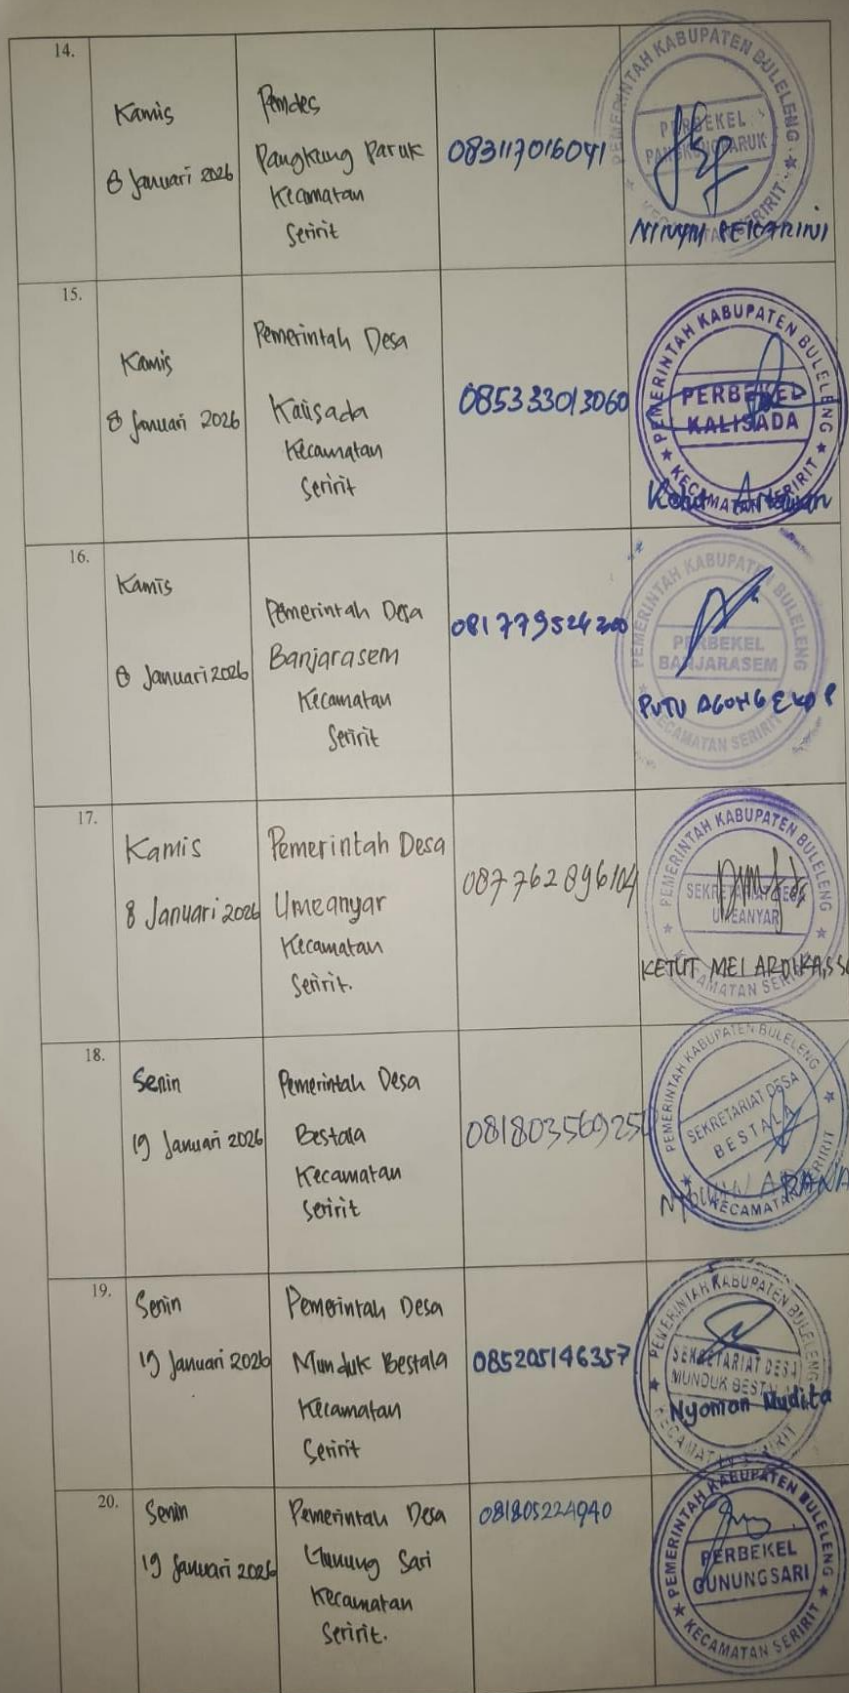 14.
Kamis
8 Januari 2026
Pemdes
Pangkung Paruk
Kecamatan
Seririt
083117016041
PEMERINTAH KABUPATEN BULELENG
PERBEKEL
PANGKUNGPARUK
KECAMATAN SERIRIT
15.
Kamis
8 Januari 2026
Pemerintah Desa
Kalisada
Kecamatan
Seririt
085333013060
PEMERINTAH KABUPATEN BULELENG
PERBEKEL
KALISADA
KECAMATAN SERIRIT
16.
Kamis
8 Januari 2026
Pemerintah Desa
Banjarasem
Kecamatan
Seririt
081779524300
PEMERINTAH KABUPATEN BULELENG
PERBEKEL
BANJARASEM
PUTU AGUNG EKA P
KECAMATAN SERIRIT
17.
Kamis
8 Januari 2026
Pemerintah Desa
Umeanyar
Kecamatan
Seririt.
087762896104
PEMERINTAH KABUPATEN BULELENG
SEKRETARIAT DESA
UMEANYAR
KETUT MEI ARDIKA,
KECAMATAN SERIRIT
18.
Senin
19 Januari 2026
Pemerintah Desa
Bestala
Kecamatan
Seririt
PEMERINTAH KABUPATEN BULELENG
SEKRETARIAT DESA
BESTALA
KECAMATAN SERIRIT
19.
Senin
19 Januari 2026
Pemerintah Desa
Munduk Bestala
Kecamatan
Seririt
085205146357
PEMERINTAH KABUPATEN BULELENG
SEKRETARIAT DESA
MUNDUK BESTALA
Nyoman Mudita
KECAMATAN SERIRIT
20.
Senin
19 Januari 2026
Pemerintah Desa
Gunung Sari
Kecamatan
Seririt.
081805224940
PEMERINTAH KABUPATEN BULELENG
PERBEKEL
GUNUNGSARI
KECAMATAN SERIRIT